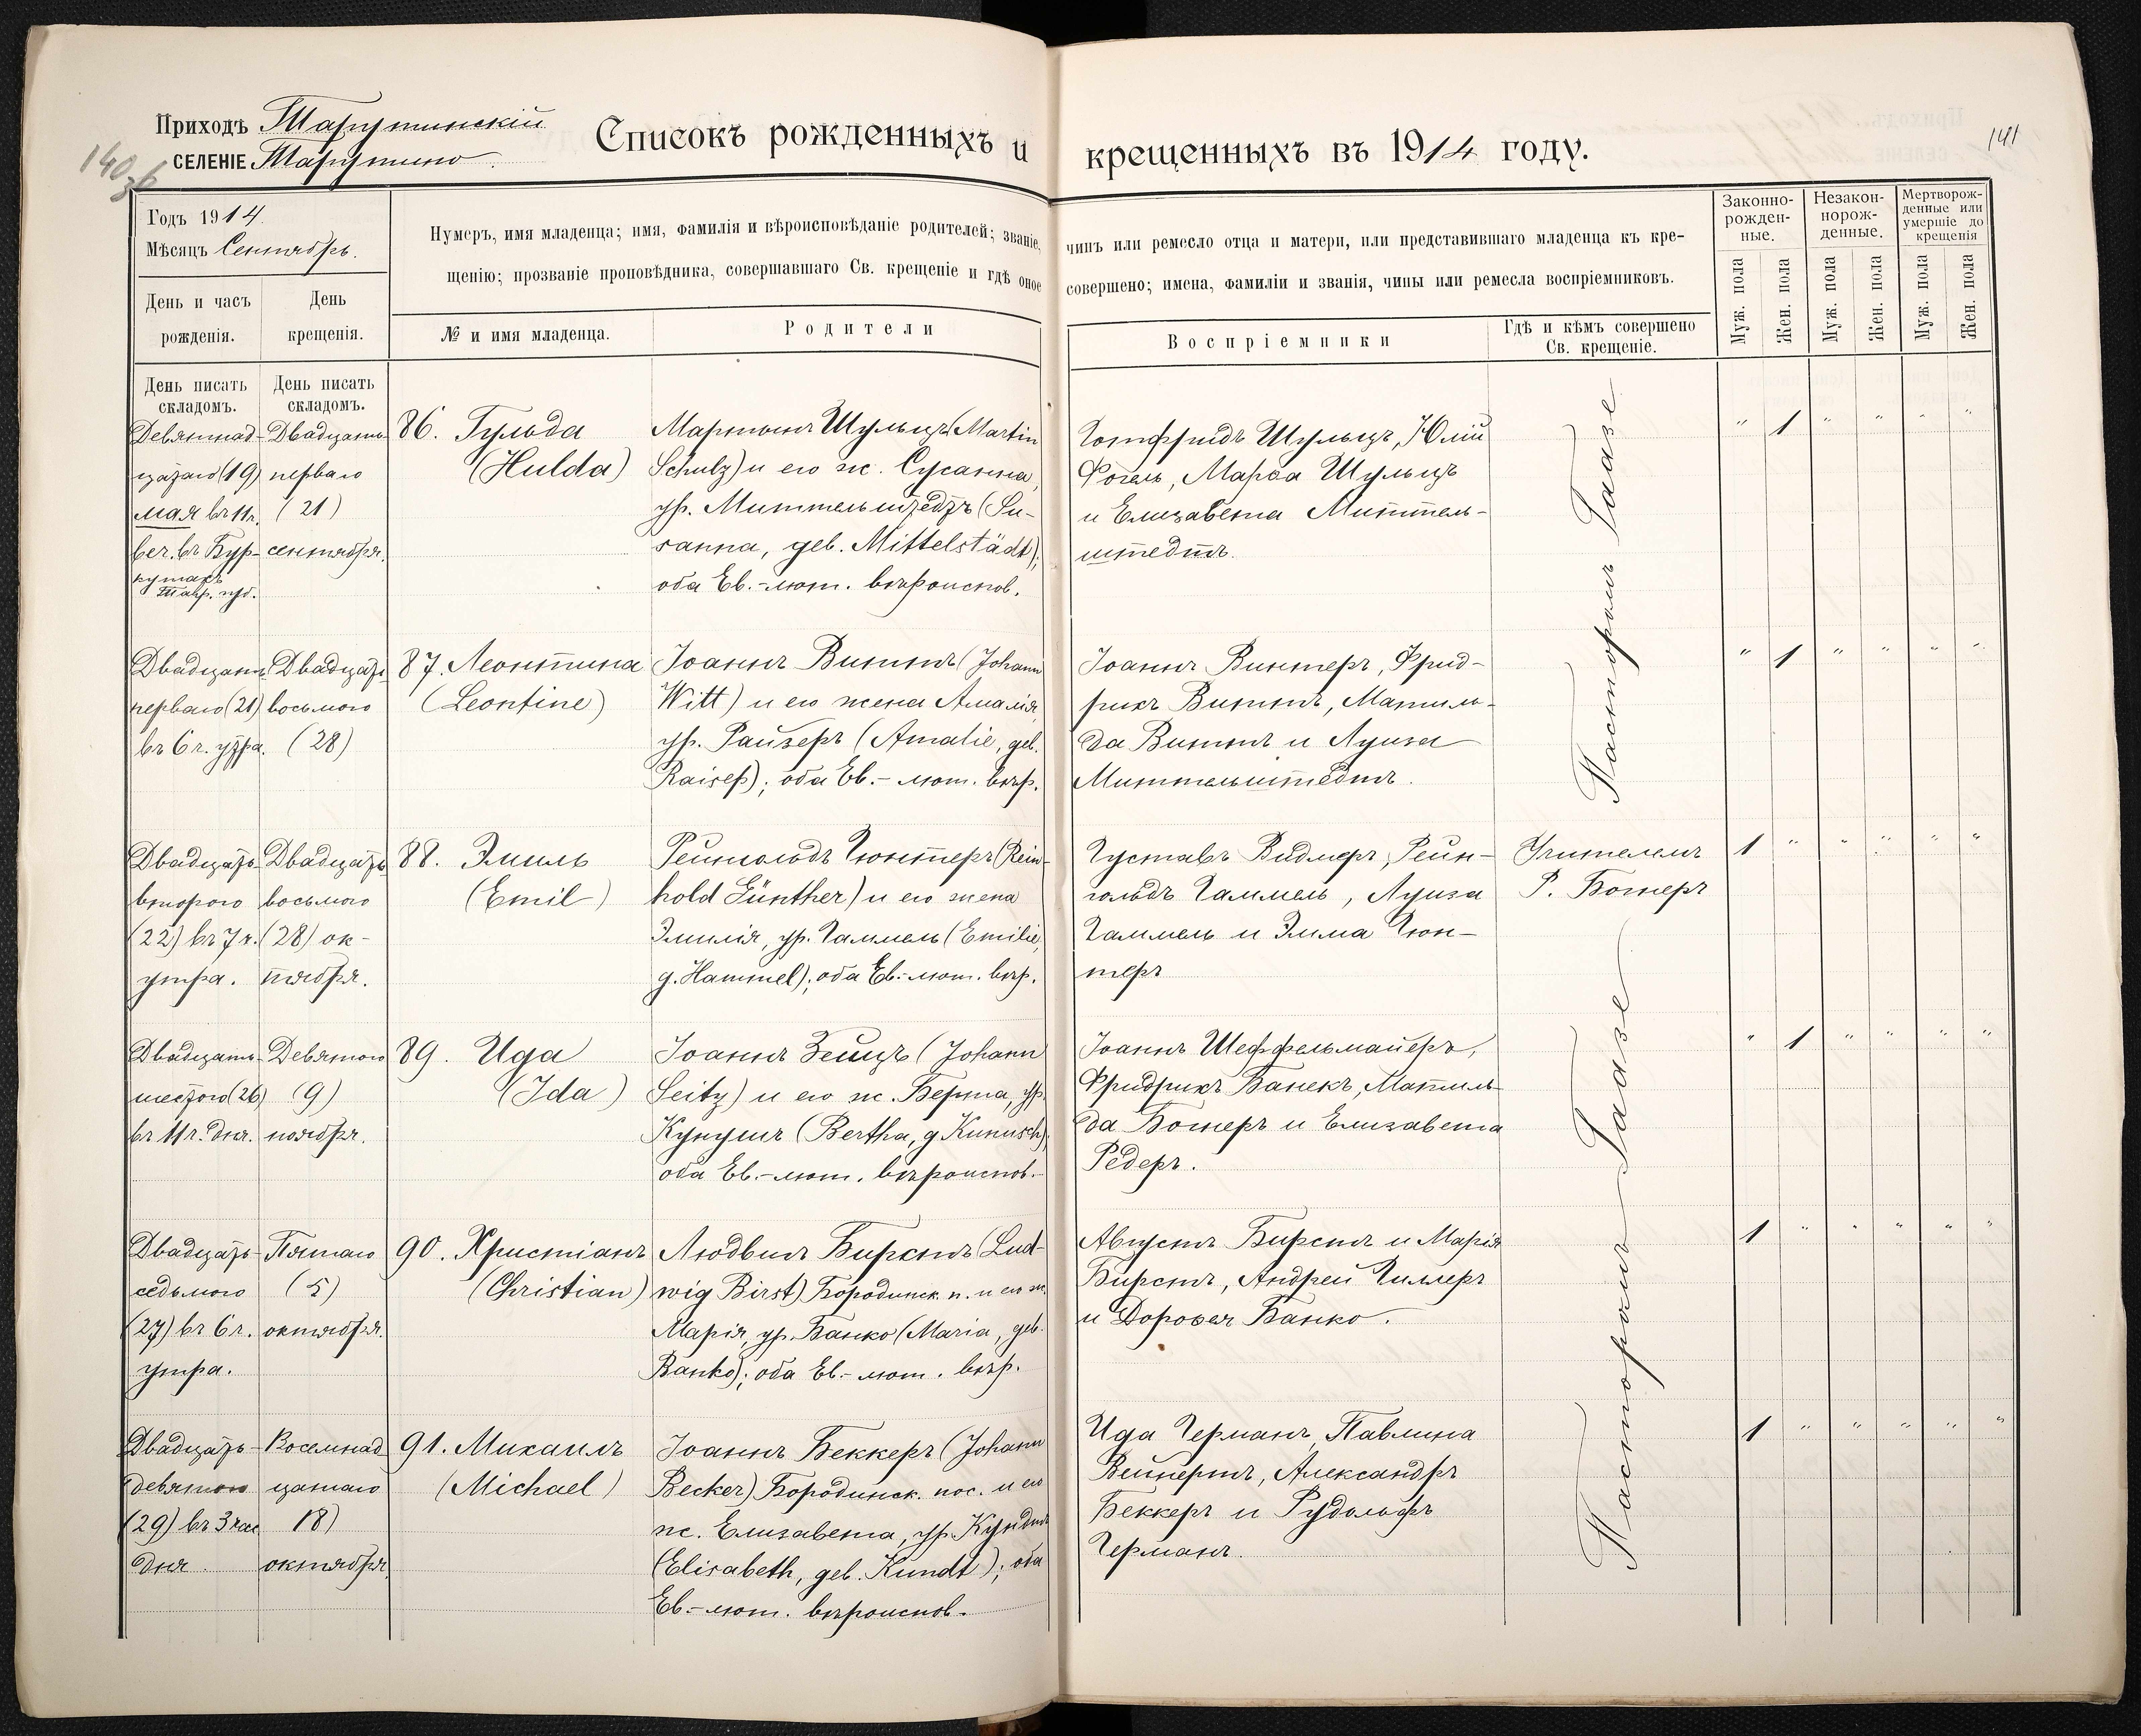 Приходъ Тарутинскій
СЕЛЕНІЕ Тарутино
140
141
Списокъ рожденныхъ и крещенныхъ въ 1914 году.
Годъ 1914.
Мѣсяцъ Сентябрь.
День и часъ рожденія.
День крещенія.
Нумеръ, имя младенца; имя, фамилія и вѣроисповѣданіе родителей; званіе, чинъ или ремесло отца и матери, или представившаго младенца къ кре-
щенію; прозваніе проповѣдника, совершавшаго Св. крещеніе и гдѣ оное совершено; имена, фамиліи и званія, чины или ремесла воспріемниковъ.
№ и имя младенца.
Родители
Воспріемники
Гдѣ и кѣмъ совершено
Св. крещеніе.
Законно-
рожден-
ные.
Незакон-
норож-
денные.
Мертворож-
денные или
умершіе до
крещенія
Муж. пола
Жен. пола
Муж. пола
Жен. пола
Муж. пола
Жен. пола
День писать
складомъ.
День писать
складомъ.
Девятнад-
цатаго (19)
мая въ 11 ч.
веч. въ Бур-
кутахъ
Тавр. губ.
Двадцать
перваго
(21)
сентября.
86. Гульда
(Hulda)
Мартинъ Шульцъ (Martin
Schulz) и его ж. Сусанна,
ур. Миттельштедтъ (Su-
sanna, geb. Mittelstädt);
оба Ев.-лют. вѣроиспов.
Готфридъ Шульцъ, Юлій
Фогель, Марѳа Шульцъ
и Елизавета Миттель-
штедтъ.
Пасторомъ Гаазе
" 1 " " " "
Двадцать
перваго (21)
въ 6 ч. утра.
Двадцать
восьмого
(28)
87. Леонтина
(Leontine)
Іоаннъ Виттъ (Johann
Witt) и его жена Амалія,
ур. Райзеръ (Amalie, geb.
Raiser); оба Ев.-лют. вѣр.
Іоаннъ Винтеръ, Фрид-
рихъ Виттъ, Матиль-
да Виттъ и Луиза
Миттельштедтъ.
" 1 " " " "
Двадцать
второго
(22) въ 7 ч.
утра.
Двадцать
восьмого
(28) ок-
тября.
88. Эмиль
(Emil)
Рейнгольдъ Гюнтеръ (Rein-
hold Günther) и его жена
Эмилія, ур. Гаммель (Emilie,
g. Hammel); оба Ев.-лют. вѣр.
Густавъ Видмеръ, Рейн-
гольдъ Гаммель, Луиза
Гаммель и Эмма Гюн-
теръ
Учителемъ
Р. Ботеръ
1 " " " " "
Двадцать
шестого (26)
въ 11 ч. дня.
Девятого
(9)
ноября.
89. Ида
(Ida)
Іоаннъ Зейцъ (Johann
Seitz) и его ж. Берта, ур.
Кунушъ (Bertha, g. Kunusch);
оба Ев.-лют. вѣроиспов.
Іоаннъ Шеффельмайеръ,
Фридрихъ Банекъ, Матиль-
да Ботеръ и Елизавета
Редеръ.
Пасторомъ Гаазе
" 1 " " " "
Двадцать
седьмого
(27) въ 6 ч.
утра.
Пятаго
(5)
октября.
90. Христіанъ
(Christian)
Людвигъ Бирстъ (Lud-
wig Birst) Бородинск. п. и его ж.
Марія, ур. Банко (Maria, geb.
Banko); оба Ев.-лют. вѣр.
Августъ Бирстъ и Марія
Бирстъ, Андрей Гиллеръ
и Доровея Банко.
1 " " " " "
Двадцать
девятого
(29) въ 3 час
дня.
Восемнад
цатаго
18)
октября.
91. Михаилъ
(Michael)
Іоаннъ Беккеръ (Johann
Becker) Бородинск. пос. и его
ж. Елизавета, ур. Кундтъ
(Elisabeth, geb. Kundt); оба
Ев.-лют. вѣроиспов.
Ида Германъ, Павлина
Вейнертъ, Александръ
Беккеръ и Рудольфъ
Германъ.
1 " " " " "